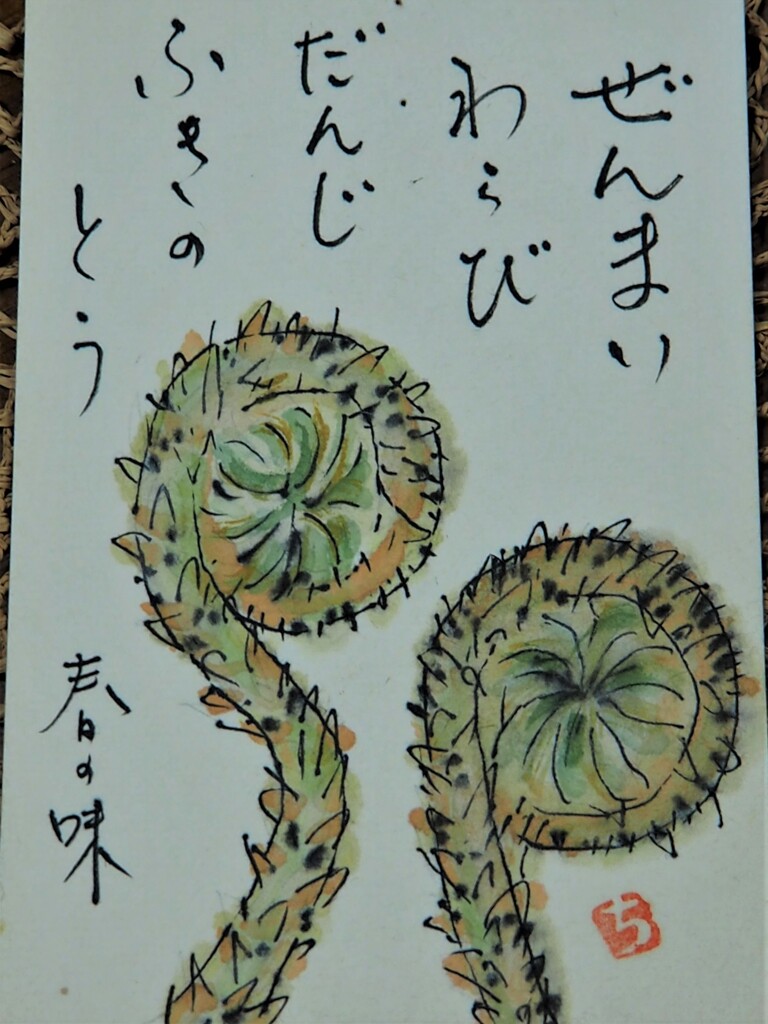 ぜんまい
わらび
だんじ
ふきの
とう
春の味